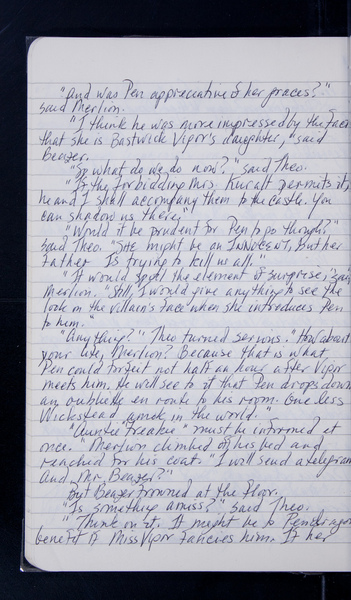 "And was Pen appreciative of her graces?"
said Merlion.
"I think he was more impressed by the fact
that she is Bastwick Vipor's daughter," said
Beazer.
"So what do we do now?" said Theo.
"If the forbidding Mrs. Kuralt permits it,
he and I shall accompany them to the castle. You
can shadow us there."
"Would it be prudent for Pen to go though?"
said Theo. "She might be an INNOCENT, but her
father is trying to kill us all."
"It would spoil the element of surprise," said
Merlion. "Still, I would give anything to see the
look on the villain's face when she introduces Pen
to him."
"Anything?" Theo turned serious. "How about
your life, Merlion? Because that is what
Pen could forfeit not half an hour after Vipor
meets him. He will see to it that Pen drops down
an oubliette en route to his room. One less
Wickstead in the world."
"Auntie Freakie must be informed at
once." Merlion climbed off his bed and
reached for his coat. "I will send a telegram
and, Mr. Beazer?"
But Beazer frowned at the floor.
"Is something amiss?" said Theo.
"Think on it. It might be to
benefit if Miss Vipor fancies him. If her